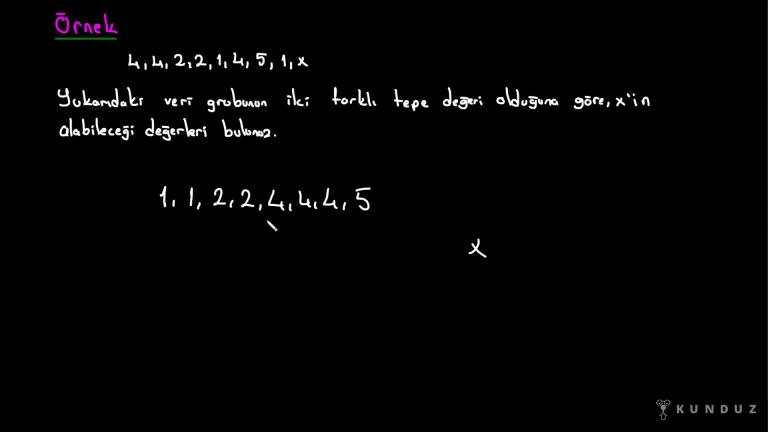 Örnek
4,4,2,2,1,4,5,1,x
Yukarıdaki veri grubunun iki farklı tepe değeri olduğuna göre, x'in
alabileceği değerleri bulunuz.
1,1,2,2,4,4,4,5
x
KUNDUZ